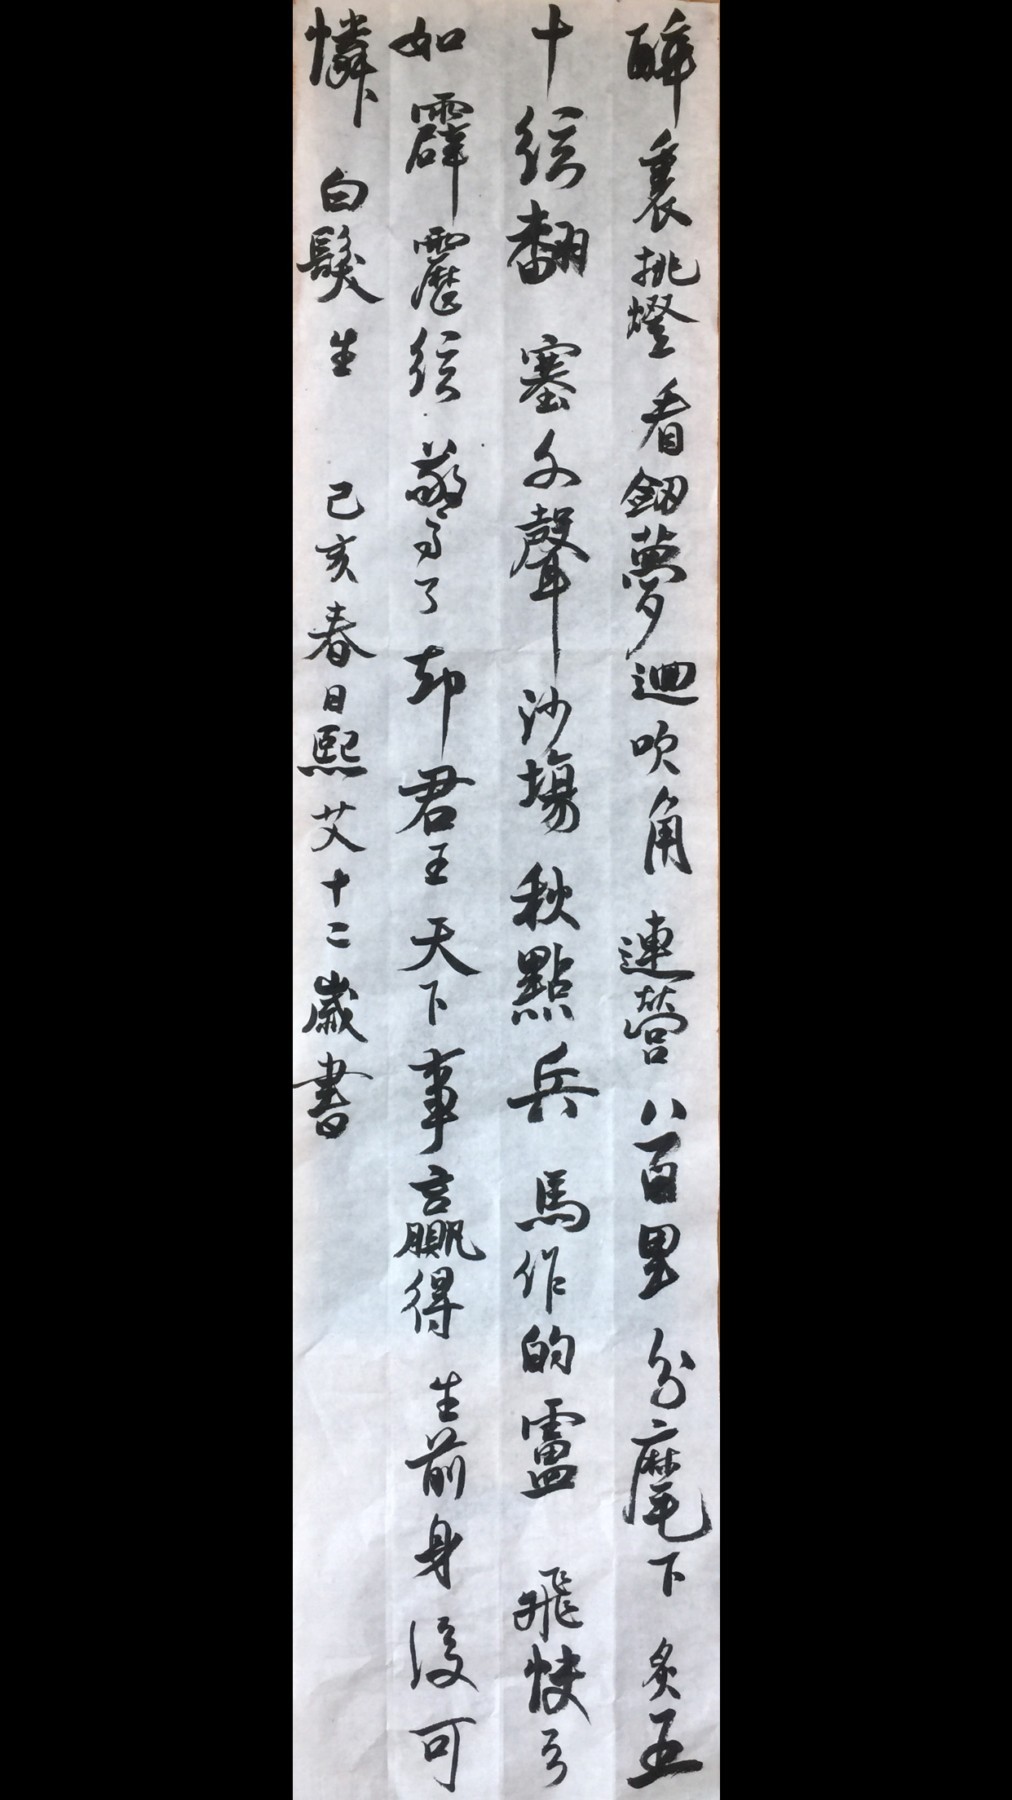 醉裏挑燈看劔夢迴吹角連營八百里分麾下炙五
十絃翻塞外聲沙場秋點兵馬作的盧飛快弓
如霹靂絃驚了却君王天下事贏得生前身後可
憐白髮生 己亥春日熙艾十二歲書